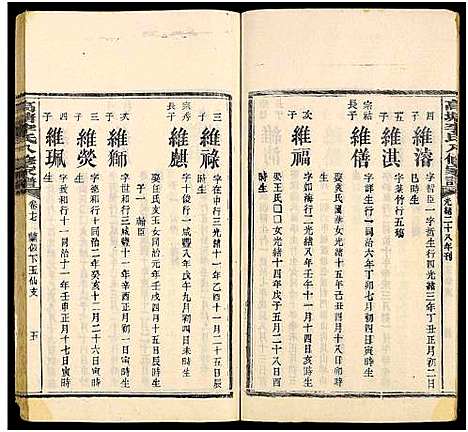 高塘李氏八修家譜
光緒二十八年刊
四子
維濤
字智臣一字哲生行四光緒三年丁丑正月初二日
時生
五子
維淇
字葉竹行五殤
宗結子
維僐
字行一同治六年丁卯七月初四日寅時生
娶袁氏國華女光緒十五年己丑四月十八日卯時生
次子
維福
字如海行二光緒十一年月十四日亥時生
娶王氏□□女光緒八年壬午十二月二十八日酉
時生
三子
維祿
字在中行三光緒十一年乙酉十一月二十五日
時生
長子
維麒
字十俊行一咸豐八年戊午九月初四日未時生
娶汪氏亥玉女同治元年壬戌四月十五日辰時生
子一 翰臣
次子
維獅
字世和行三咸豐十一年辛酉正月初一日寅時生
三子
維熒
字政和行十同治二年癸亥十二月二十六日寅時生
四子
維珮
字恒和行十一同治十一年壬申正月十七日寅時生
高塘李氏八修家譜
卷七
下玉仙支
五